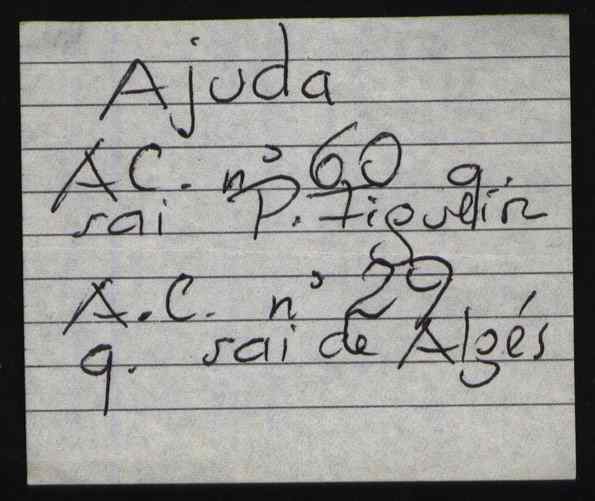 Ajuda
AC. nº 60 q.
sai P. Figueira
A.C. nº 29
q. sai de Algés